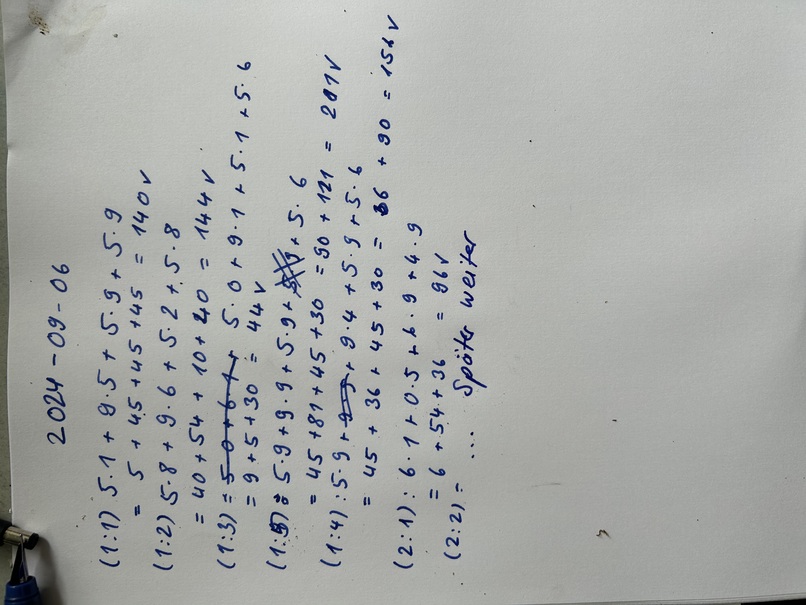 2024-09-06
(1:1) 5·1 + 9·5 + 5·9 + 5·9
= 5 + 45 + 45 + 45 = 140 ✓
(1:2) 5·8 + 9·6 + 5·2 + 5·8
= 40 + 54 + 10 + 40 = 144 ✓
(1:3) = 5·0 + 6·1 + 5·0 + 9·1 + 5·1 + 5·6
= 9 + 5 + 30 = 44 ✓
(1:5) = 5·9 + 9·9 + 5·9 + 5·6
= 45 + 81 + 45 + 30 = 90 + 121 = 201 ✓
(1:4): 5·9 + 9·4 + 5·9 + 5·6
= 45 + 36 + 45 + 30 = 66 + 90 = 156 ✓
(2:1): 6·1 + 0·5 + 6·9 + 4·9
= 6 + 54 + 36 = 96 ✓
(2:2) = ... Später weiter